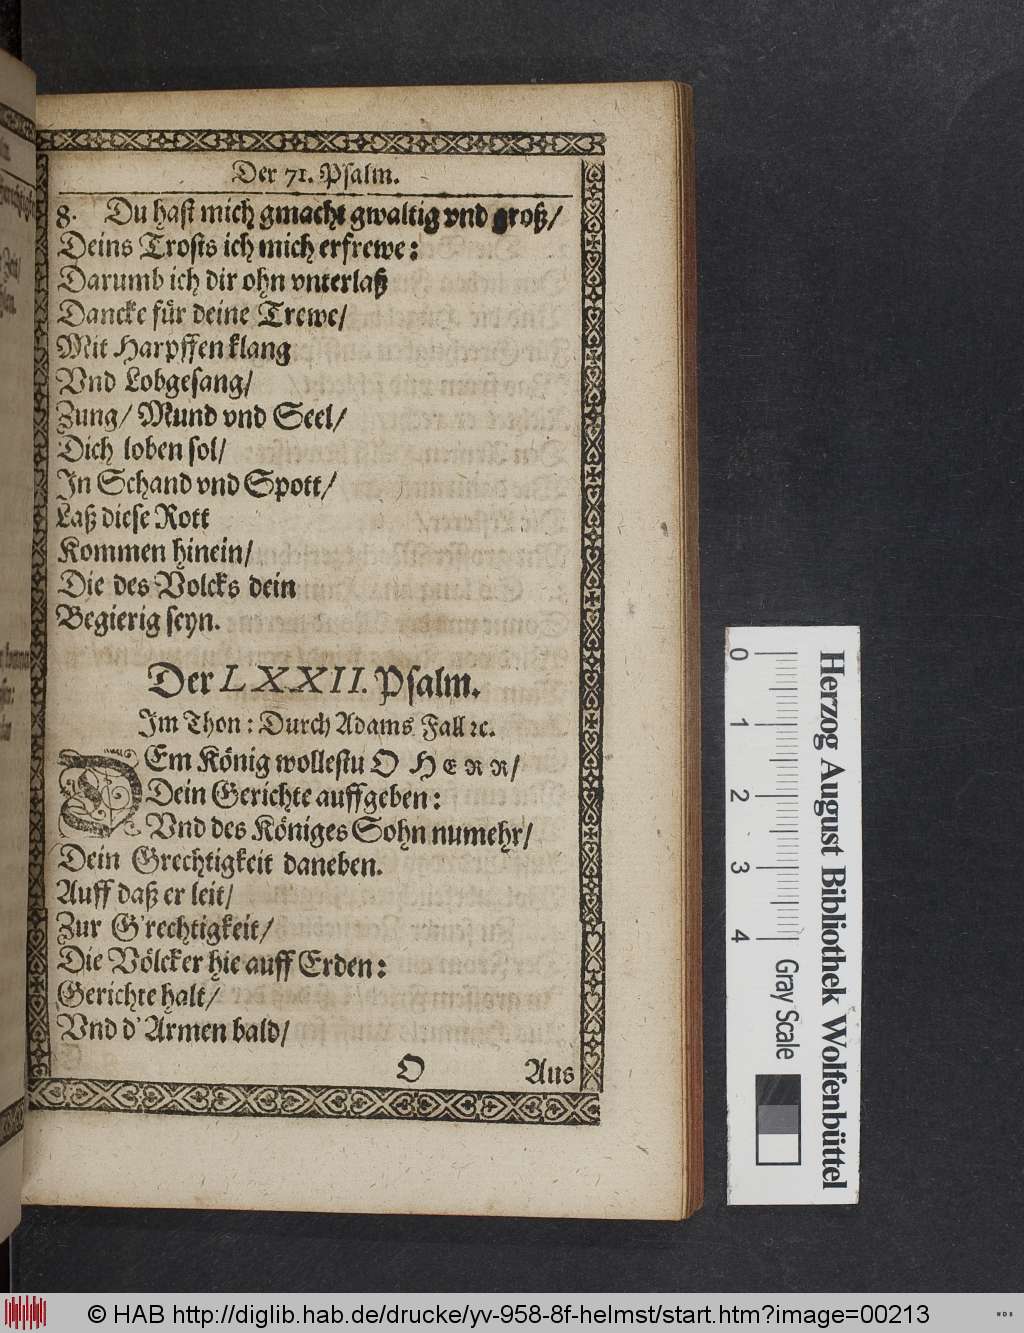 Der 71. Psalm.
8. Du hast mich gmacht gwaltig vnd groß/
Deins Trosts ich mich erfrewe:
Darumb ich dir ohn vnterlaß
Dancke für deine Trewe/
Mit Harpffen klang
Vnd Lobgesang/
Zung/ Mund vnd Seel/
Dich loben sol/
In Schand vnd Spott/
Laß diese Rott
Kommen hinein/
Die des Volcks dein
Begierig seyn.
Der LXXII. Psalm.
Im Thon: Durch Adams Fall ꝛc.
DEm König wollestu O HERR/
Dein Gerichte auffgeben:
Vnd des Königes Sohn numehr/
Dein Grechtigkeit daneben.
Auff daß er leit/
Zur G'rechtigkeit/
Die Völcker hie auff Erden:
Gerichte halt/
Vnd d' Armen bald/
O Aus
0 1 2 3 4
Gray Scale
Herzog August Bibliothek Wolfenbüttel
© HAB http://diglib.hab.de/drucke/yv-958-8f-helmst/start.htm?image=00213